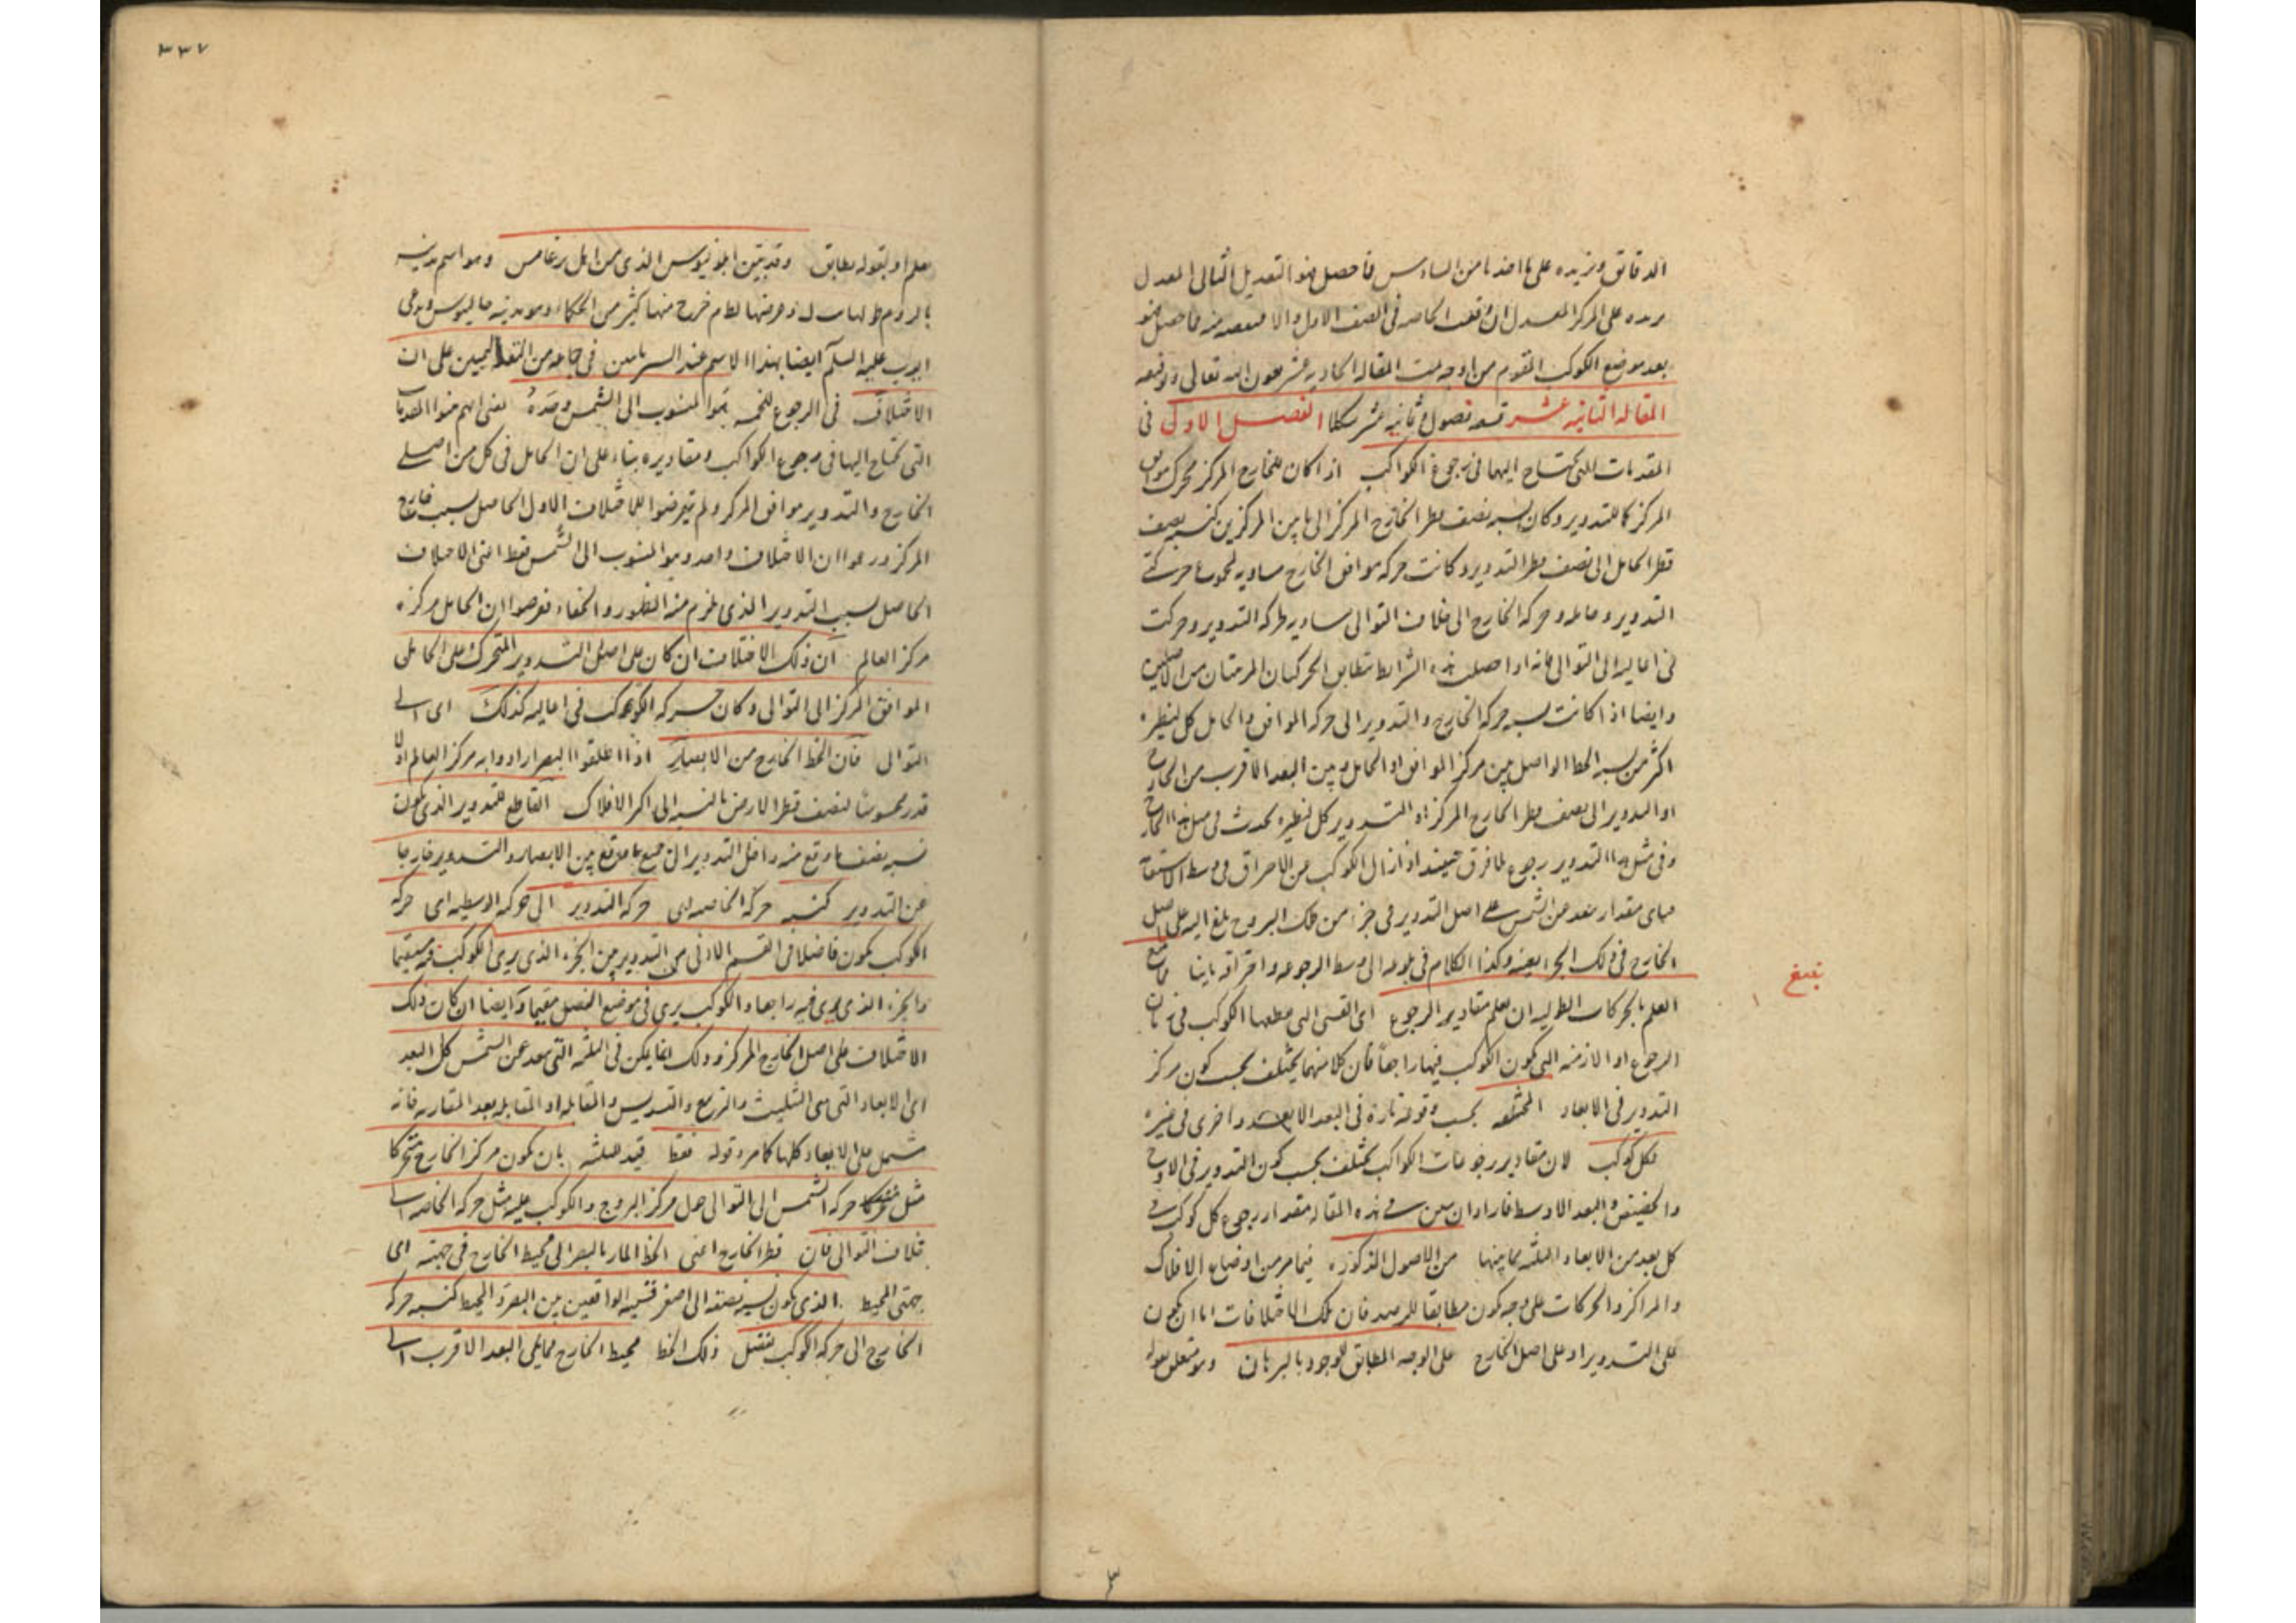 الدقائق ونزيده على ما اخذنا من السادس فما حصل فهو التعديل الثانى المعدل
نزيده على المركز المعدل ان وقعت الخاصه فى النصف الاول والا ننقصه منه فما حصل فهو
بعد موضع الكوكب المقوم من اوجه تمت المقاله الحاديه عشر بعون الله تعالى وتوفيقه
المقاله الثانيه عشر تسعه فصول وثمانيه عشر شكلا الفصل الاول فى
المقدمات التى يحتاج اليها فى رجوع الكواكب اذا كان للخارج المركز محرك موافق
المركز كما للتدوير وكان نسبه نصف قطر الخارج المركز الى ما بين المركزين كنسبه نصف
قطر الحامل الى نصف قطر التدوير وكانت حركه موافق الخارج مساويه لمجموع حركتى
التدوير وحامله وحركه الخارج الى خلاف التوالى مساويه لحركه التدوير وحركت
فى اعاليه الى التوالى فانه اذا حصلت هذه الشرايط تتطابق الحركتان المرئيتان من الاصلين
وايضا اذا كانت نسبه حركه الخارج والتدوير الى حركه الموافق والحامل كل لنظيره
اكثر من نسبه الخط الواصل بين مركز الموافق او الحامل وبين البعد الاقرب من الخارج
او التدوير الى نصف قطر الخارج المركز او التدوير كل لنظيره يحدث فى مثل هذا الخارج
وفى مثل هذا التدوير رجوع بلا فرق حينئذ اذا زال الكوكب عن الاحتراق فى وسط الاستقامة
فباى مقدار بعد عن الشمس على اصل التدوير فى جزء من فلك البروج بلغ اليه على اصل
الخارج فى ذلك الجزء بعينه وكذا الكلام فى بلوغه الى وسط الرجوع واحتراقه ثانيا مما يتبع
العلم بالحركات الطوليه ان يعلم مقادير الرجوع اى القسى التى يقطعها الكوكب فى زمان
الرجوع او الازمنه التى يكون الكوكب فيها راجعا فان كلا منهما يختلف بحسب كون مركز
التدوير فى الابعاد المختلفه بحسب وقوعه تارة فى البعد الابعد واخرى فى غيره
لكل كوكب لان مقادير رجوعات الكواكب تختلف بحسب كون التدوير فى الاوج
والحضيض والبعد الاوسط فاراد ان يبين فى هذه المقاله مقدار رجوع كل كوكب فى
كل بعد من الابعاد الثلثه بما بينها من الاصول المذكوره فيما مر من اوضاع الافلاك
والمراكز والحركات على وجه يكون مطابقا للرصد فان تلك الاختلافات اما ان يكون
على التدوير او على اصل الخارج على الوجه المطابق للوجود بالبرهان وهو متعلق بقوله
تبلغ
٣٣٧
يعلم او بقوله مطابق وقد بين ابلونيوس الذى من اهل برغامس وهو اسم مدينه
بالروم طولها وعرضها خرج منها كثير من الحكماء وهو مدينه جالينوس ويدعى
ايوب عليه السلم ايضا بهذا الاسم عند السريانين فى جماعه من التعليميين على ان
الاختلاف فى الرجوع للخمسه هو المنسوب الى الشمس وحده يعنى انهم بنوا المقدمات
التى يحتاج اليها فى رجوع الكواكب ومقاديره بناء على ان الحامل فى كل من اصلى
الخارج والتدوير موافق المركز ولم يتعرضوا للاختلاف الاول الحاصل بسبب خارج
المركز وزعموا ان الاختلاف واحد وهو المنسوب الى الشمس فقط اعنى الاختلاف
الحاصل بسبب التدوير الذى يلزم منه الظهور والخفاء ففرضوا ان الحامل مركزه
مركز العالم ان ذلك الاختلاف ان كان على اصل التدوير المتحرك على الحامل
الموافق المركز الى التوالى وكان حركه الكوكب فى اعاليه كذلك اى الى
التوالى فان الخط الخارج من الابصار اذا اطلقوا البصر ارادوا به مركز العالم اذ لا
قدر محسوسا لنصف قطر الارض بالنسبه الى اكر الافلاك القاطع للتدوير الذى يكون
نسبه نصف ما وقع منه داخل التدوير الى جميع ما وقع بين الابصار والتدوير خارجا
عن التدوير كنسبه حركه الخاصه اى حركه التدوير الى حركه الوسطيه اى حركه
الكوكب يكون فاضلا فى القسم الادنى من التدوير بين الجزء الذى يرى الكوكب فيه مستقيما
والجزء الذى يرى فيه راجعا والكوكب يرى فى موضع الفصل مقيما وايضا ان كان ذلك
الاختلاف على اصل الخارج المركز وذلك انما يمكن فى الثلثه التى تبعد عن الشمس كل البعد
اى الابعاد التى هى التثليث والتربيع والتسديس والمقابله او المقابله بعد المقارنه فانه
مشتمل على الابعاد كلها كما مر وقوله فقط قيد للثلثه بان يكون مركز الخارج متحركا
مثل حركه الشمس الى التوالى حول مركز البروج والكوكب عليه مثل حركه الخاصه الى
خلاف التوالى فان قطر الخارج اعنى الخط المار بالبصر الى محيط الخارج فى جهته اى
جهتى المحيط الذى يكون نسبه نصفه الى اصغر قسميه الواقعين بين البصر والمحيط كنسبه حركه
الخارج الى حركه الكوكب يفصل ذلك الخط محيط الخارج مما يلى البعد الاقرب الى